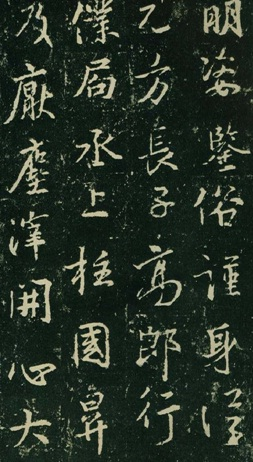 明姿鑒俗謹身
乙方長子高郎行
僕局丞上柱國昇
及厭塵滓開心大